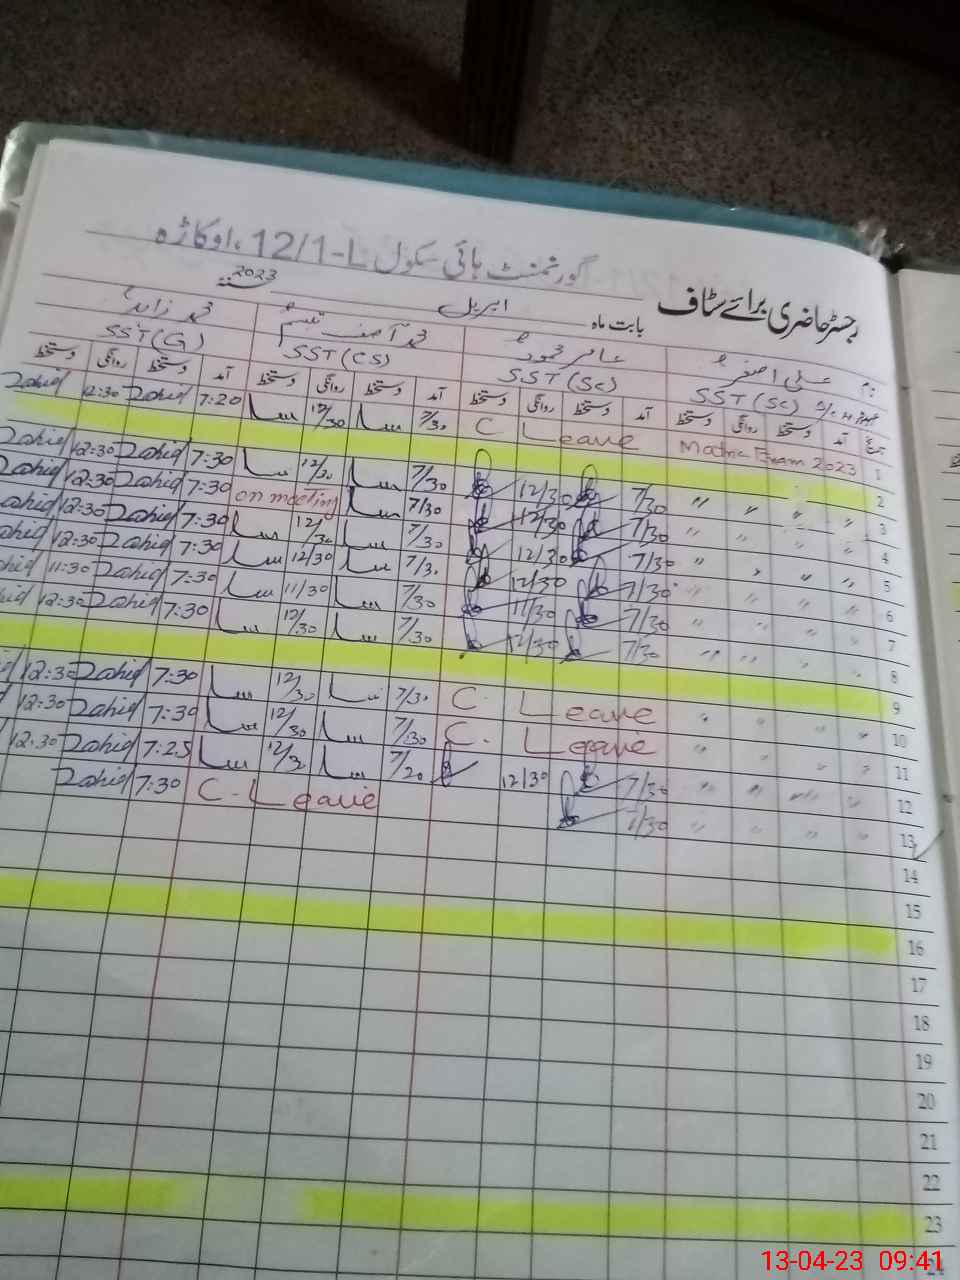 گورنمنٹ ہائی سکول 12/1-L، اوکاڑہ
رجسٹر حاضری برائے سٹاف
بابت ماہ اپریل 2023
علی اصغر عامر محمود محمد آصف محمد زاہد
SST (SC) SST (SC) SST (CS) SST (G)
تاریخ آمد دستخط روانگی دستخط آمد دستخط روانگی دستخط آمد دستخط روانگی دستخط آمد دستخط روانگی دستخط
1 Matric Exam 2023 C Leave 7/30 12/30 7:20 Zahid 12:30 Zahid
2
3 " " " " 7/30 12/30 7/30 12/30 7:30 Zahid 12:30 Zahid
4 " " " " 7/30 12/30 7/30 on meeting 7:30 Zahid 12:30 Zahid
5 " " " " 7/30 12/30 7/30 12/30 7:30 Zahid 12:30 Zahid
6 " " " " 7/30 12/30 7/30 12/30 7:30 Zahid 12:30 Zahid
7 " " " " 7/30 11/30 7/30 11/30 7:30 Zahid 11:30
8 " " " " 7/30 12/30 7/30 12/30 7:30 Zahid 12:30
9
10 " " " " C. Leave 7/30 12/30 7:30 Zahid 12:30
11 " " " " C. Leave 7/30 12/30 7:30 Zahid 12:30
12 " " " " 7/30 12/30 7/20 12/30 7:25 Zahid 12:30
13 " " " " 7/30 C. Leave 7:30 Zahid
14
15
16
17
18
19
20
21
22
23
24
13-04-23 09:41